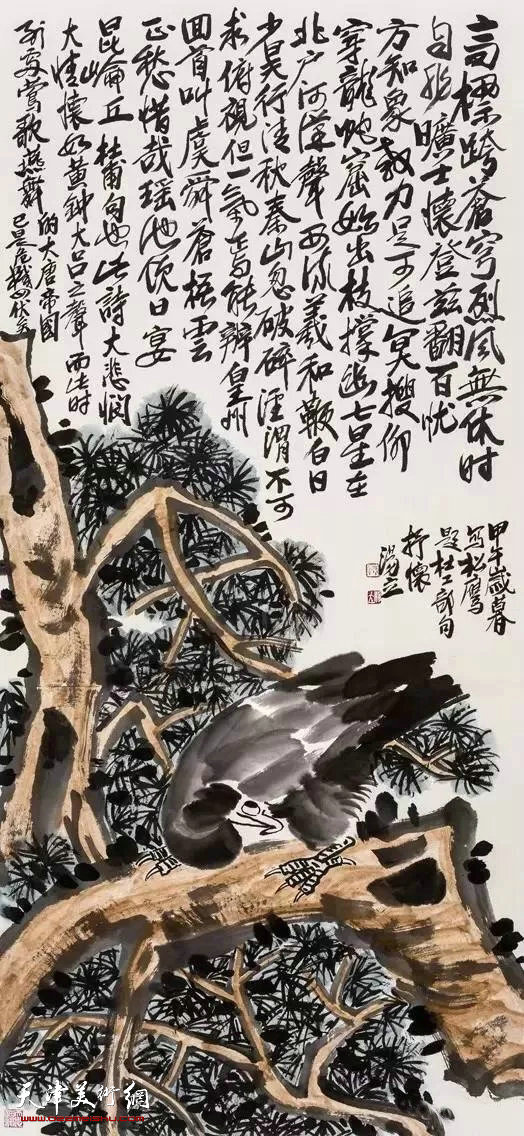 高標跨蒼穹烈风無休时
自非曠士懷登兹翻百忧
方知象教力足可追冥搜仰
穿龍蛇窟始出枝撑幽七星在
北户河漢聲西流羲和鞭白日
少昊行清秋秦山忽破碎涇渭不可
求俯視但一氣焉能辨皇州
回首叫虞舜蒼梧雲
正愁惜哉瑶池饮日宴
昆崙丘 杜甫句也此詩大悲悯
大情懷如黄鈡大吕之聲而此时
到處鶯歌燕舞的大唐帝国
已是危機四伏矣
甲午歲暮
写松鹰
题杜工部句
抒懷
湯立
天津美術網